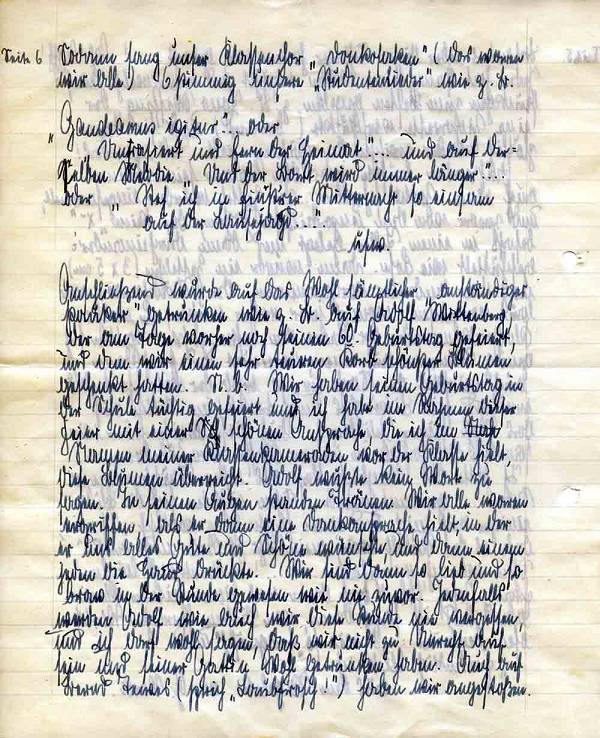 Seite 6
Sodann sang unser Klassenchor „Donkosaken" (das waren
wir alle) 6 stimmig unsere „Studentenlieder" wie z. B.
„Gaudeamus igitur"... oder
„Unrasiert und fern der Heimat"... und auf der=
selben Melodie „Und der Bart wird immer länger"...
oder „Steh' ich in finstrer Mitternacht so einsam
auf der Lausejagd...."
usw.
Anschließend wurde auf das Wohl sämtlicher „anständiger
" getrunken wie z. B. auf Adolf Wittenberg
der am Tage vorher noch seinen 60. Geburtstag gefeiert,
und dem wir einen sehr teueren Korb schönster Blumen
geschenkt hatten. N. b. Wir haben seinen Geburtstag in
der Schule tüchtig gefeiert und ich habe im Rahmen dieser
Feier mit einer schönen Ansprache, die ich im
Namen meiner Klassenkameraden vor der Klasse hielt,
diese Blumen überreicht. Adolf wußte kein Wort zu
sagen. In seinen Augen standen Tränen. Wir alle waren
ergriffen, als er dann eine Dankansprache hielt, in der
er uns alles Gute und Schöne wünschte und dann einem
jeden die Hand drückte. Wir sind dann so lieb und so
brav in der Stunde gewesen wie nie zuvor. Jedenfalls
werden Adolf wie auch wir diese Stunde nie vergessen,
und ich darf wohl sagen, daß wir nicht zu Unrecht auf
sein und seiner Wohl getrunken haben. Auch auf
Bernd (sprich „Laubfrosch!") haben wir angestoßen.